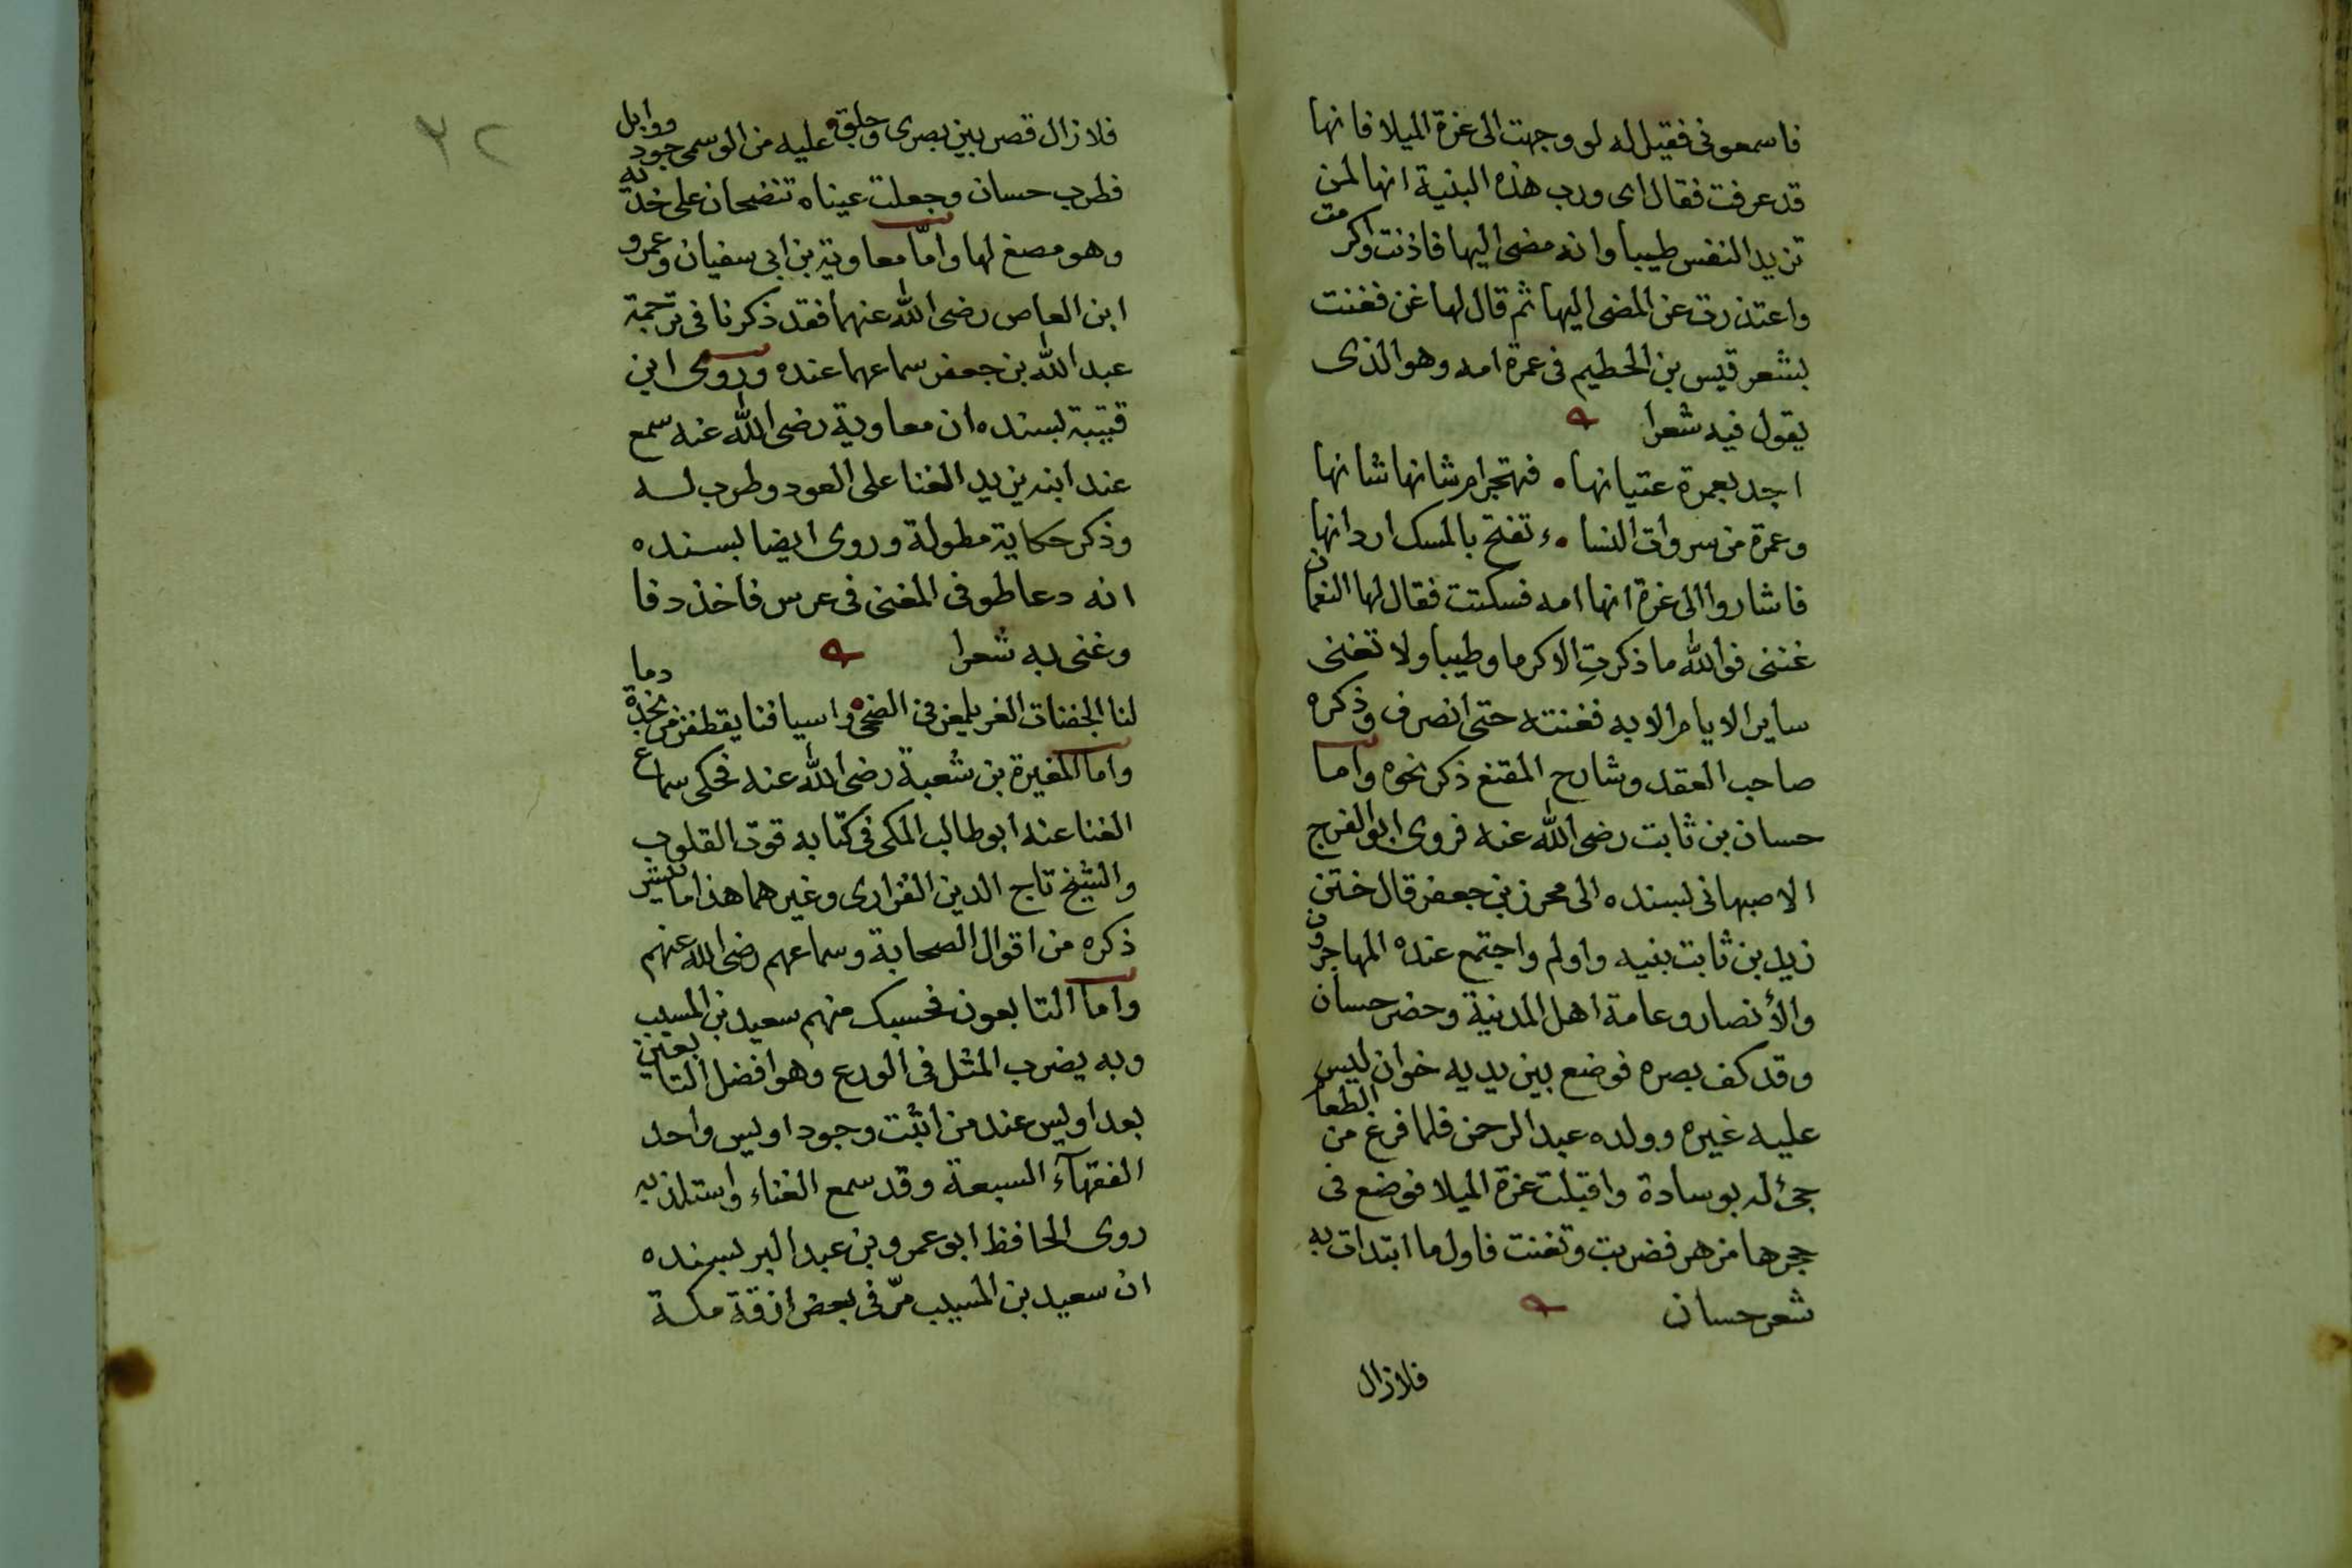 فاسمعونى فقيل له لو وجهت الى عزة الميلا فانها
قد عرفت فقال اى ورب هذه البنية انها لمن
تزيد النفس طيبا وانه مضى اليها فاذنت واكرمت
واعتذرت عن المضى اليها ثم قال لها غن فغنت
بشعر قيس بن الحطيم فى عمرة امه وهو الذى
يقول فيه شعرا
اجد بعمرة عتيانها فتهجر ام شانها شانها
وعمرة من سروات النساء تفتح بالمسك اردانها
فاشاروا الى عزة انها امه فسكتت فقال لها النعمان
غننى فوالله ما ذكرتِ الا كرما وطيبا ولا تغنى
ساير الايام الا به فغنته حتى انصرف وذكره
صاحب العقد وشارح المقنع ذكر نحوه واما
حسان بن ثابت رضى الله عنه فروى ابو الفرج
الاصبهانى بسنده الى محرز بن جعفر قال ختن
زيد بن ثابت بنيه واولم واجتمع عنده المهاجرون
والأنصار وعامة اهل المدينة وحضر حسان
وقد كف بصره فوضع بين يديه خوان ليس
عليه غيره وولده عبد الرحمن فلما فرغ من الطعام
جئ له بوسادة واقبلت عزة الميلا فوضع فى
حجرها مزهر فضربت وتغنت فاول ما ابتدات به
شعر حسان
فلا زال
٣٢
فلا زال قصر بين بصرى وجلق وعليه من الوسمى جود ووابل
فطرب حسان وجعلت عيناه تنضحان على خديه
وهو مصغ لها وامّا معاوية بن ابى سفيان وعمرو
ابن العاص رضى الله عنهما فقد ذكرنا فى ترجمة
عبد الله بن جعفر سماعهما عنده وروى ابن
قتيبة بسنده ان معاوية رضى الله عنه سمع
عند ابنه يزيد الغنا على العود وطرب له
وذكر حكاية مطولة وروى ايضا بسنده
انه دعا طوفى المغنى فى عرس فاخذ دفا
وغنى به شعرا
لنا الجفنات الغر يلمعن فى الضحى واسيافنا يقطفن من نجدة دما
واما المغيرة بن شعبة رضى الله عنه فحكى سماع
الغنا عنه ابو طالب المكى فى كتابه قوت القلوب
والشيخ تاج الدين الفزارى وغيرهما هذا ما تيسر
ذكره من اقوال الصحابة وسماعهم رضى الله عنهم
واما التابعون فحسبك منهم سعيد بن المسيب
وبه يضرب المثل فى الورع وهو افضل التابعين
بعد اويس عند من اثبت وجود اويس واحد
الفقهآء السبعة وقد سمع الغناء واستلذ به
روى الحافظ ابو عمرو بن عبد البر بسنده
ان سعيد بن المسيب مرّ فى بعض ازقة مكة